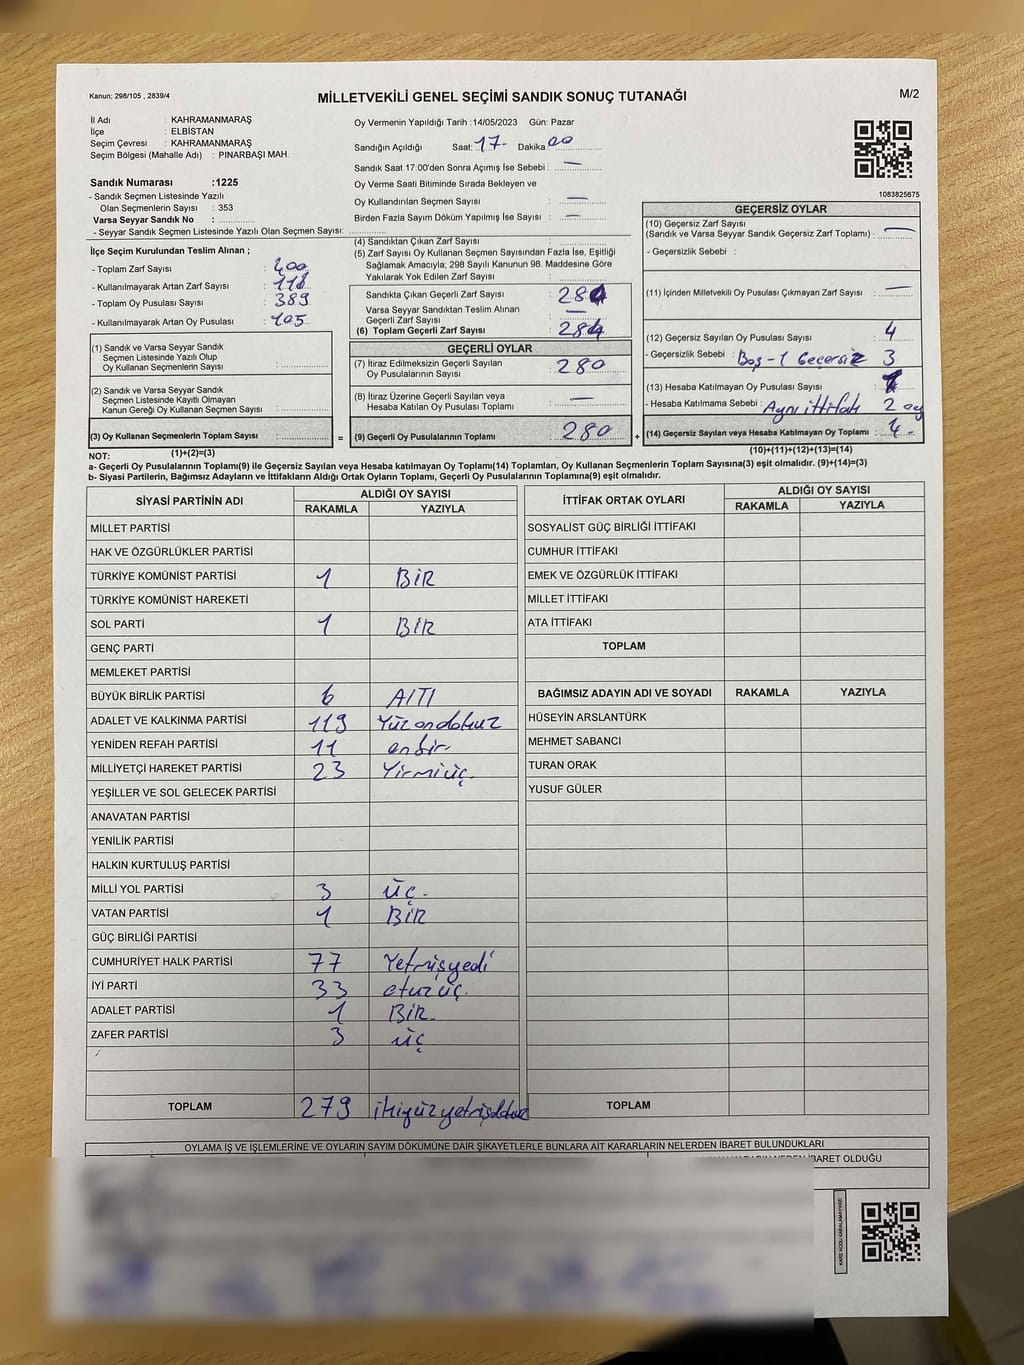 Kanun; 298/105 , 2839/4
MİLLETVEKİLİ GENEL SEÇİMİ SANDIK SONUÇ TUTANAĞI
M/2
İl Adı : KAHRAMANMARAŞ
İlçe : ELBİSTAN
Seçim Çevresi : KAHRAMANMARAŞ
Seçim Bölgesi (Mahalle Adı) : PINARBAŞI MAH.
Sandık Numarası :1225
- Sandık Seçmen Listesinde Yazılı
Olan Seçmenlerin Sayısı : 353
Varsa Seyyar Sandık No :
- Seyyar Sandık Seçmen Listesinde Yazılı Olan Seçmen Sayısı:
Oy Vermenin Yapıldığı Tarih :14/05/2023 Gün: Pazar
Sandığın Açıldığı Saat: 17- Dakika 00
Sandık Saat 17:00'den Sonra Açımış İse Sebebi : —
Oy Verme Saati Bitiminde Sırada Bekleyen ve
Oy Kullandırılan Seçmen Sayısı : —
Birden Fazla Sayım Döküm Yapılmış İse Sayısı : —
1083825675
İlçe Seçim Kurulundan Teslim Alınan ;
- Toplam Zarf Sayısı : 400
- Kullanılmayarak Artan Zarf Sayısı : 118
- Toplam Oy Pusulası Sayısı : 389
- Kullanılmayarak Artan Oy Pusulası : 105
(1) Sandık ve Varsa Seyyar Sandık
Seçmen Listesinde Yazılı Olup
Oy Kullanan Seçmenlerin Sayısı :
(2) Sandık ve Varsa Seyyar Sandık
Seçmen Listesinde Kayıtlı Olmayan
Kanun Gereği Oy Kullanan Seçmen Sayısı :
(3) Oy Kullanan Seçmenlerin Toplam Sayısı :
(1)+(2)=(3)
(4) Sandıktan Çıkan Zarf Sayısı :
(5) Zarf Sayısı Oy Kullanan Seçmen Sayısından Fazla İse, Eşitliği
Sağlamak Amacıyla; 298 Sayılı Kanunun 98. Maddesine Göre
Yakılarak Yok Edilen Zarf Sayısı :
Sandıkta Çıkan Geçerli Zarf Sayısı : 284
Varsa Seyyar Sandıktan Teslim Alınan
Geçerli Zarf Sayısı : —
(6) Toplam Geçerli Zarf Sayısı : 284
GEÇERLİ OYLAR
(7) İtiraz Edilmeksizin Geçerli Sayılan
Oy Pusulalarının Sayısı : 280
(8) İtiraz Üzerine Geçerli Sayılan veya
Hesaba Katılan Oy Pusulası Toplamı : —
= (9) Geçerli Oy Pusulalarının Toplamı : 280 +
GEÇERSİZ OYLAR
(10) Geçersiz Zarf Sayısı
(Sandık ve Varsa Seyyar Sandık Geçersiz Zarf Toplamı) : —
- Geçersizlik Sebebi :
(11) İçinden Milletvekili Oy Pusulası Çıkmayan Zarf Sayısı : —
(12) Geçersiz Sayılan Oy Pusulası Sayısı : 4
- Geçersizlik Sebebi : Boş-1 Geçersiz 3
(13) Hesaba Katılmayan Oy Pusulası Sayısı :
- Hesaba Katılmama Sebebi : Aynı ittifak 2 oy
(14) Geçersiz Sayılan veya Hesaba Katılmayan Oy Toplamı : 4-
(10)+(11)+(12)+(13)=(14)
NOT:
a- Geçerli Oy Pusulalarının Toplamı(9) ile Geçersiz Sayılan veya Hesaba katılmayan Oy Toplamı(14) Toplamları, Oy Kullanan Seçmenlerin Toplam Sayısına(3) eşit olmalıdır. (9)+(14)=(3)
b- Siyasi Partilerin, Bağımsız Adayların ve İttifakların Aldığı Ortak Oyların Toplamı, Geçerli Oy Pusulalarının Toplamına(9) eşit olmalıdır.
SİYASİ PARTİNİN ADI ALDIĞI OY SAYISI
RAKAMLA YAZIYLA
MİLLET PARTİSİ
HAK VE ÖZGÜRLÜKLER PARTİSİ
TÜRKİYE KOMÜNİST PARTİSİ 1 BİR
TÜRKİYE KOMÜNİST HAREKETİ
SOL PARTİ 1 BİR
GENÇ PARTİ
MEMLEKET PARTİSİ
BÜYÜK BİRLİK PARTİSİ 6 AlTI
ADALET VE KALKINMA PARTİSİ 119 Yüzondokuz
YENİDEN REFAH PARTİSİ 11 onbir
MİLLİYETÇİ HAREKET PARTİSİ 23 Yirmiüç.
YEŞİLLER VE SOL GELECEK PARTİSİ
ANAVATAN PARTİSİ
YENİLİK PARTİSİ
HALKIN KURTULUŞ PARTİSİ
MİLLİ YOL PARTİSİ 3 üç.
VATAN PARTİSİ 1 BİR
GÜÇ BİRLİĞİ PARTİSİ
CUMHURİYET HALK PARTİSİ 77 Yetmişyedi
İYİ PARTİ 33 otuzüç.
ADALET PARTİSİ 1 BİR-
ZAFER PARTİSİ 3 üç
TOPLAM 279 ikiyüzyetmişdokuz
İTTİFAK ORTAK OYLARI ALDIĞI OY SAYISI
RAKAMLA YAZIYLA
SOSYALİST GÜÇ BİRLİĞİ İTTİFAKI
CUMHUR İTTİFAKI
EMEK VE ÖZGÜRLÜK İTTİFAKI
MİLLET İTTİFAKI
ATA İTTİFAKI
TOPLAM
BAĞIMSIZ ADAYIN ADI VE SOYADI RAKAMLA YAZIYLA
HÜSEYİN ARSLANTÜRK
MEHMET SABANCI
TURAN ORAK
YUSUF GÜLER
TOPLAM
OYLAMA İŞ VE İŞLEMLERİNE VE OYLARIN SAYIM DÖKÜMÜNE DAİR ŞİKAYETLERLE BUNLARA AİT KARARLARIN NELERDEN İBARET BULUNDUKLARI
İBARET OLDUĞU
KARE KODU KARALAMAYINIZ!